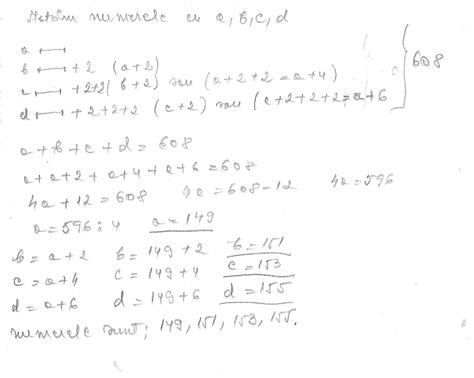 Notăm numerele cu a, b, c, d
a ⊢⊣
b ⊢⊣ +2 (a+2)
c ⊢⊣ +2+2 (b+2) sau (a+2+2=a+4)
d ⊢⊣ +2+2+2 (c+2) sau (a+2+2+2=a+6
608
a+b+c+d=608
a+a+2+a+4+a+6=608
4a+12=608 4a=608-12 4a=596
a=596:4 a=149
b=a+2 b=149+2 b=151
c=a+4 c=149+4 c=153
d=a+6 d=149+6 d=155
numerele sunt; 149, 151, 153, 155.